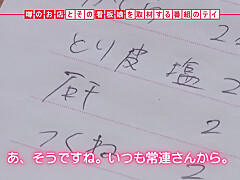 噂のお店とその看板娘を取材する番組のテイ
とり皮 塩 2
2
つくね 2
あ、そうですね。いつも常連さんから。